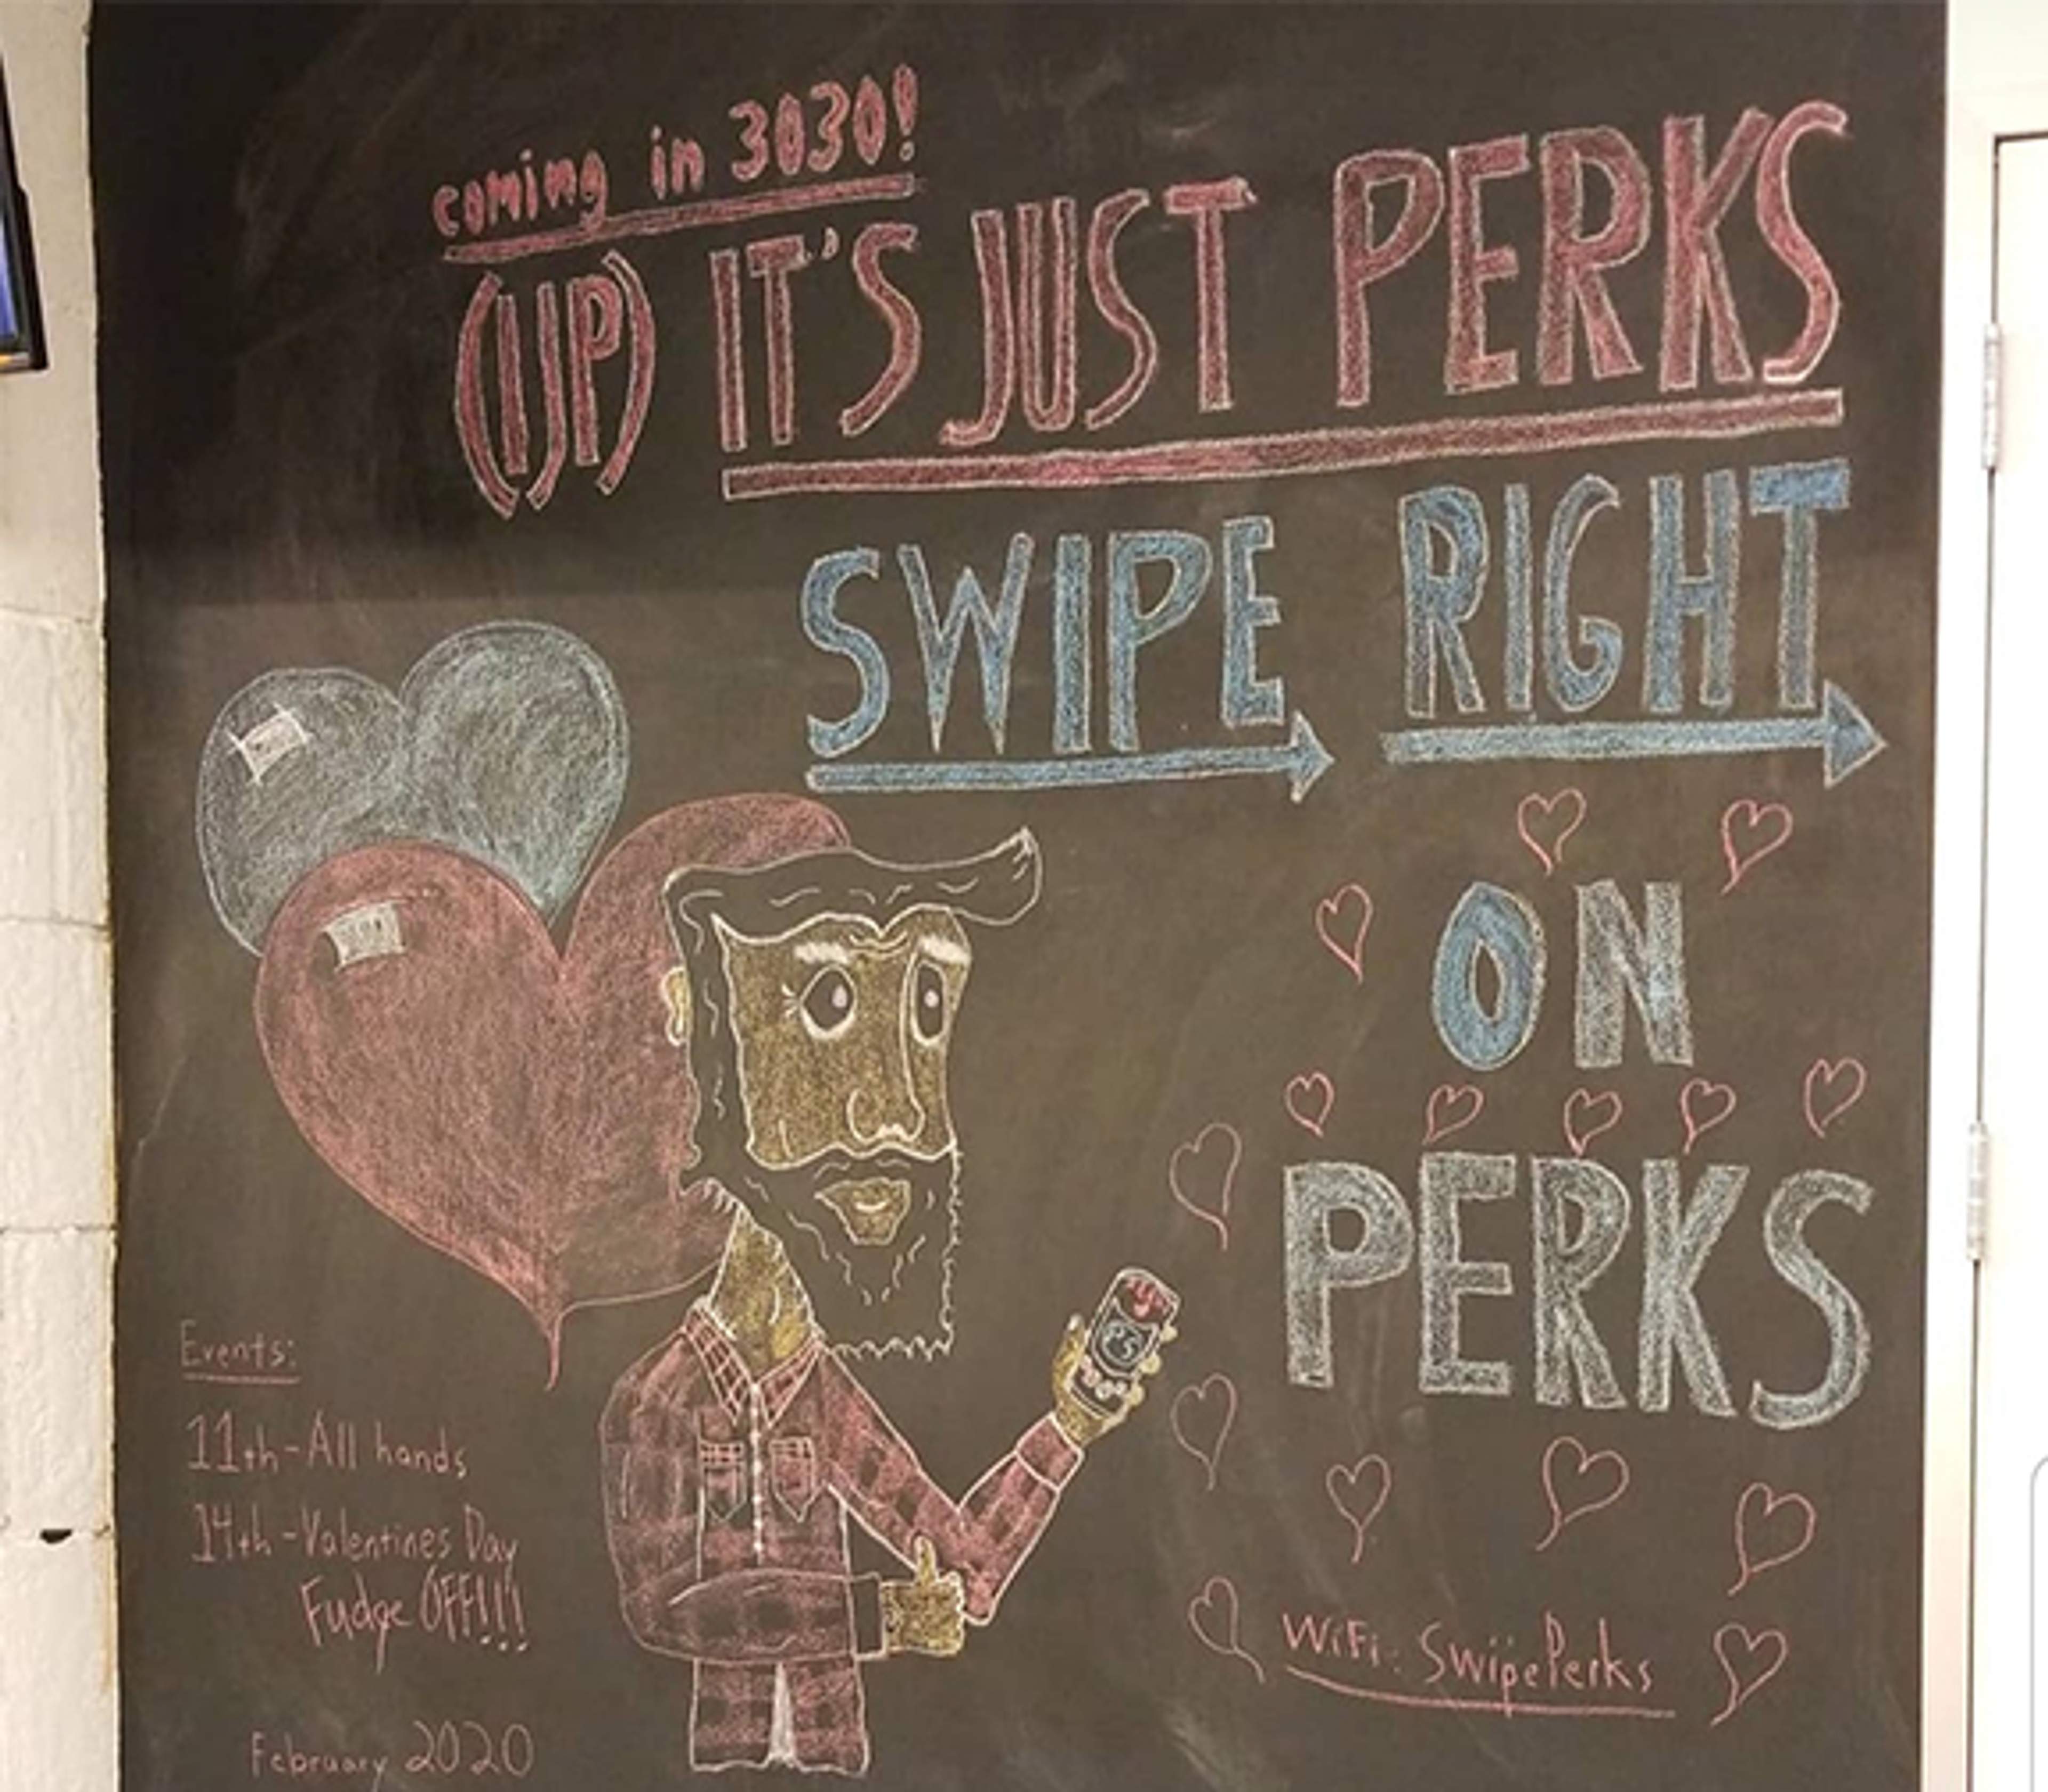 coming in 3030!
(IJP) IT'S JUST PERKS
SWIPE RIGHT
ON
PERKS
Events:
11th - All hands
14th - Valentines Day
Fudge OFF!!!
February 2020
WiFi: SwipePerks